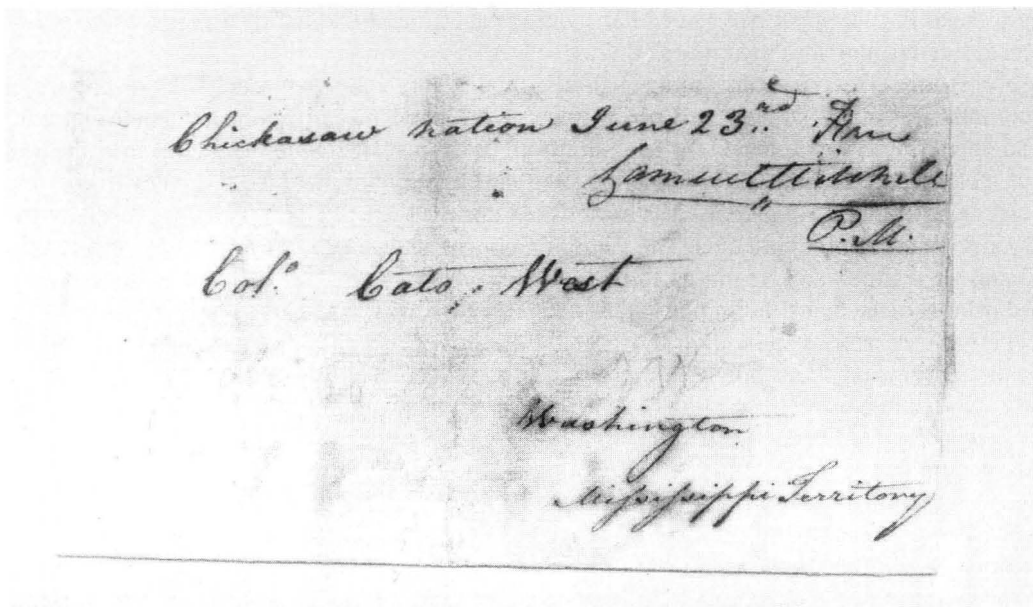 Chickasaw nation June 23.rd Free
Samuel Mitchell
P.M.
Col.o Cato West
Washington
Mississippi Territory